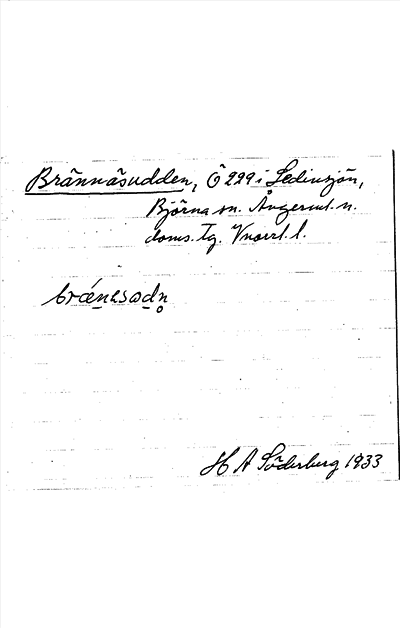 Brännäsudden, Ö 229 i Ledinsjön,
Björna sn. Ångerml. n.
doms. Tg. Vnorrl. l.
brǽnesudn̥
H A Söderberg 1933